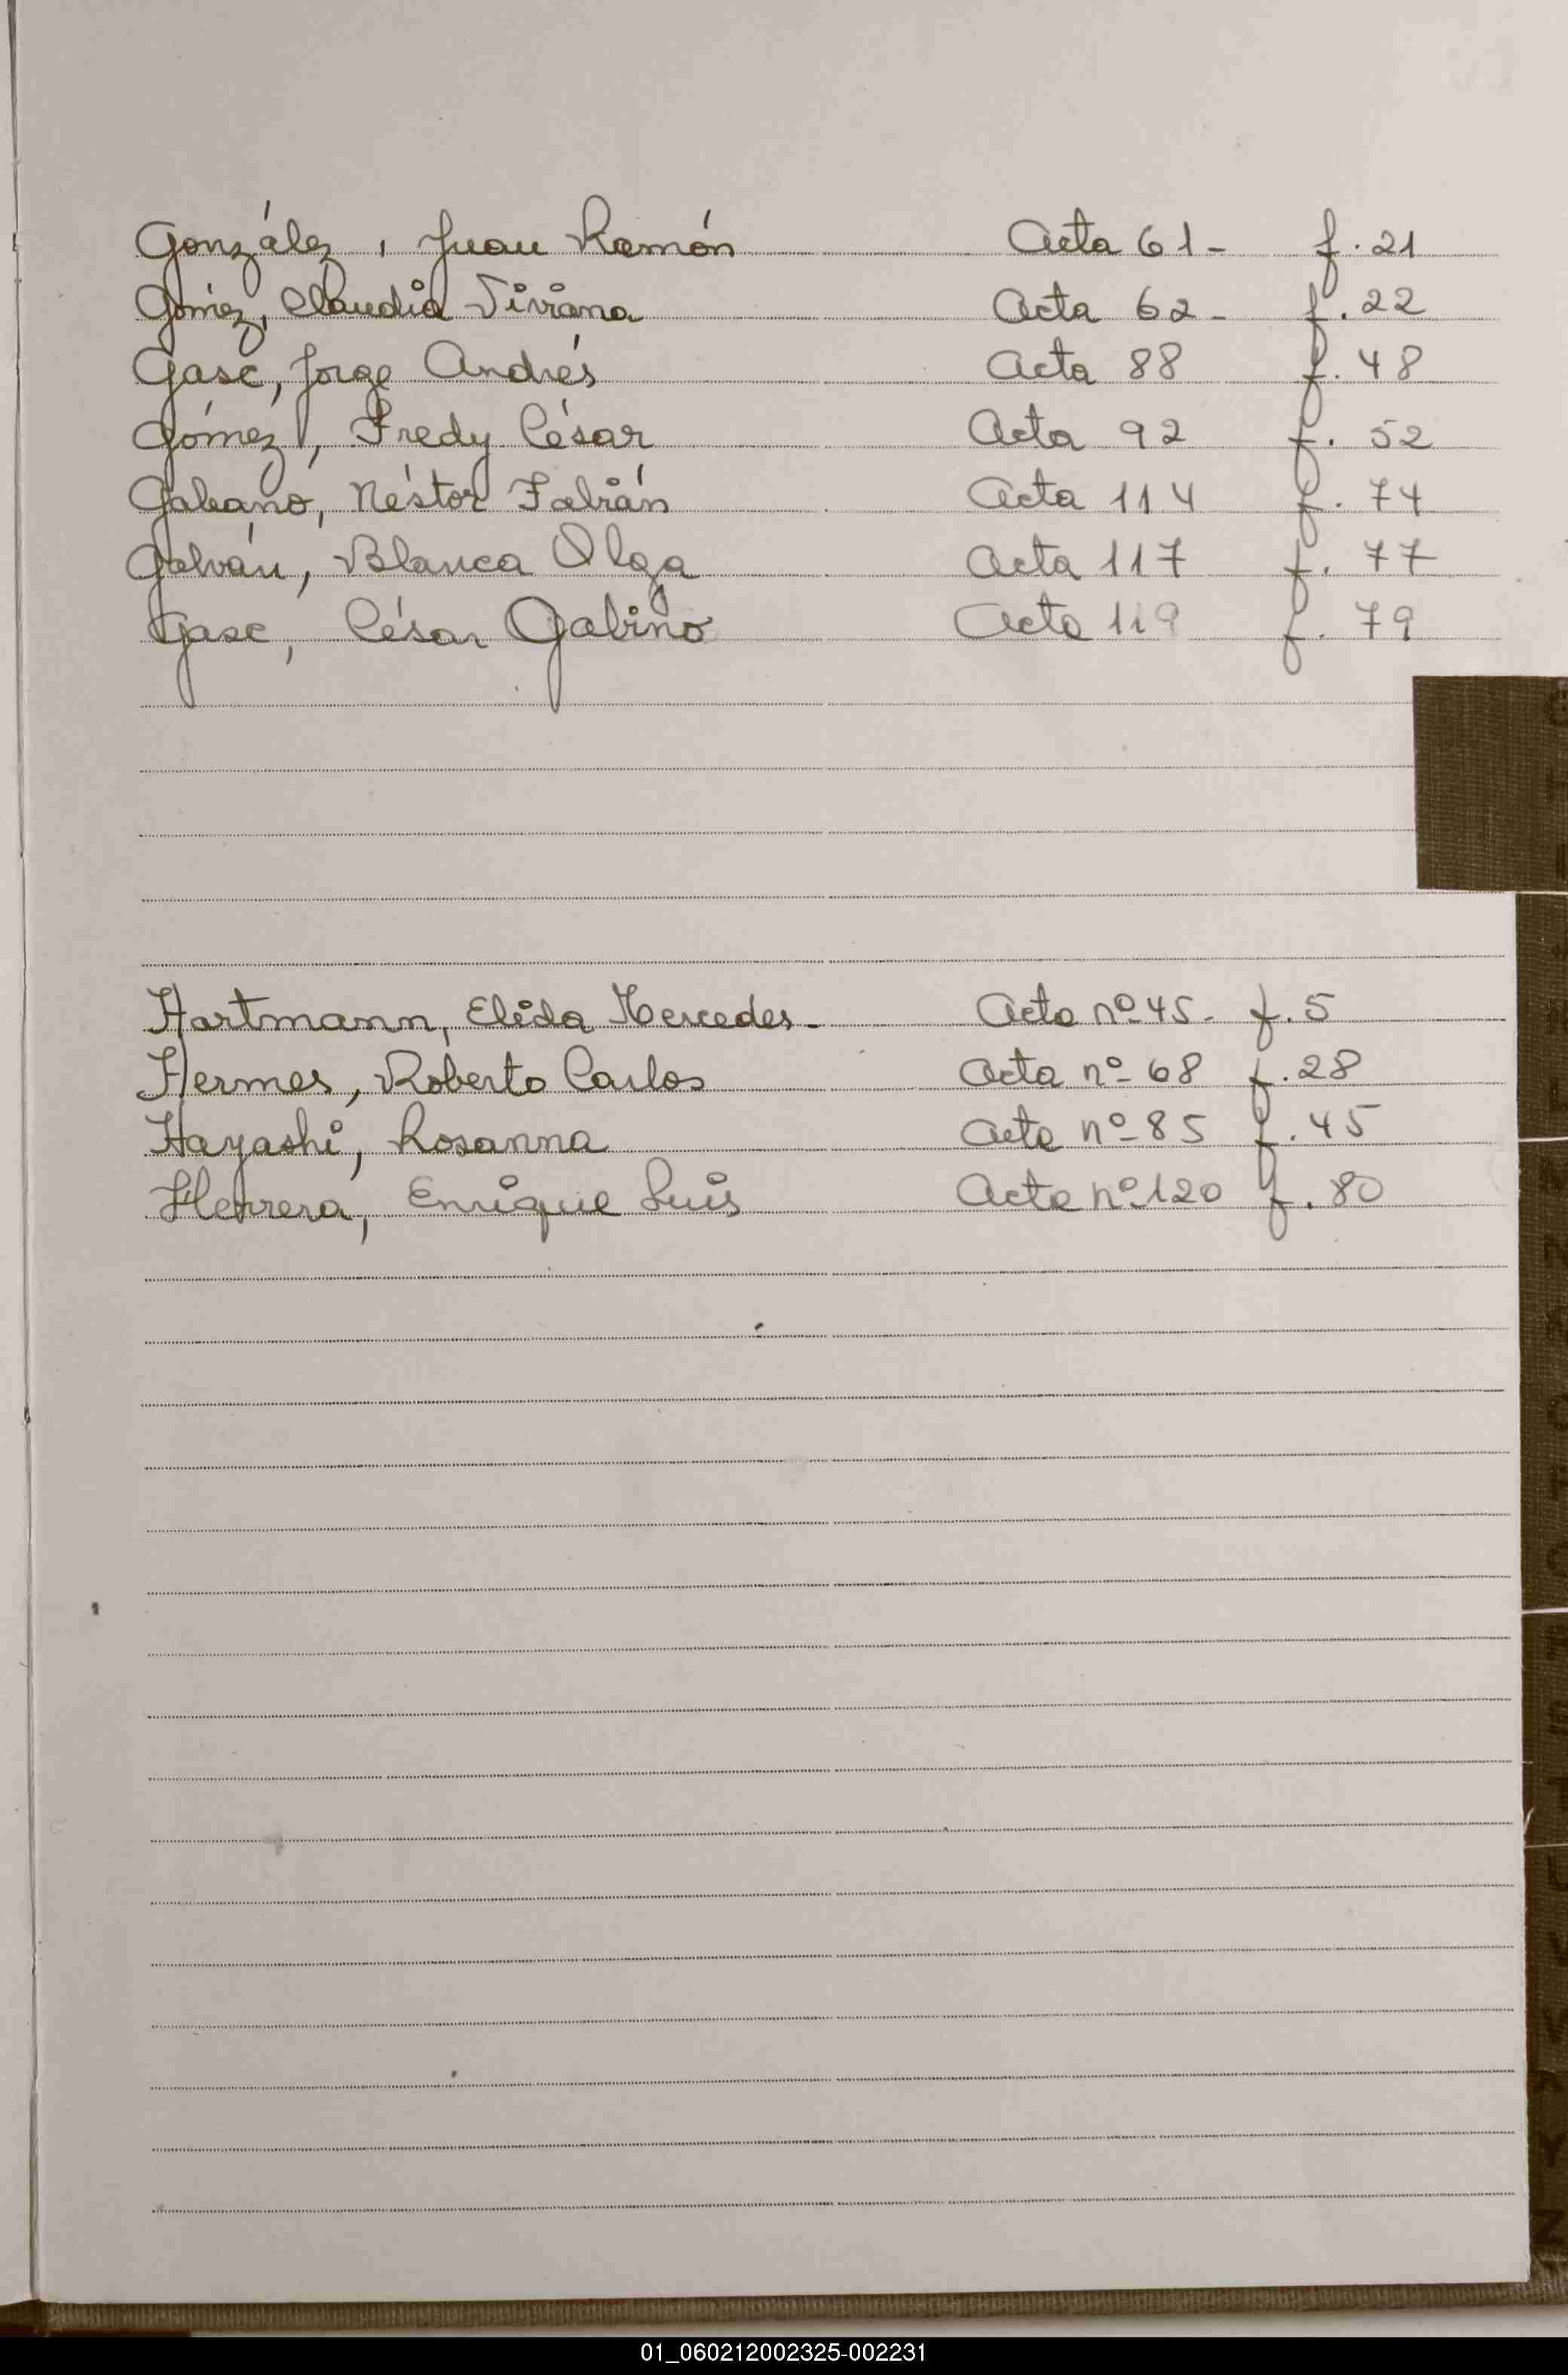 González, Juan Ramón Acta 61- f. 21
Gómez, Claudia Viviana Acta 62- f. 22
Gasc, Jorge Andrés Acta 88 f. 48
Gómez, Fredy César Acta 92 f. 52
Galeano, Néstor Fabián Acta 114 f. 74
Galván, Blanca Olga Acta 117 f. 77
Gasc, César Gabino Acta 119 f. 79
Hartmann, Elida Mercedes- Acta nº 45- f. 5
Hermes, Roberto Carlos Acta nº 68 f. 28
Hayashi, Rosanna Acta nº 85 f. 45
Herrera, Enrique Luis Acta nº 120 f. 80
01_060212002325-002231